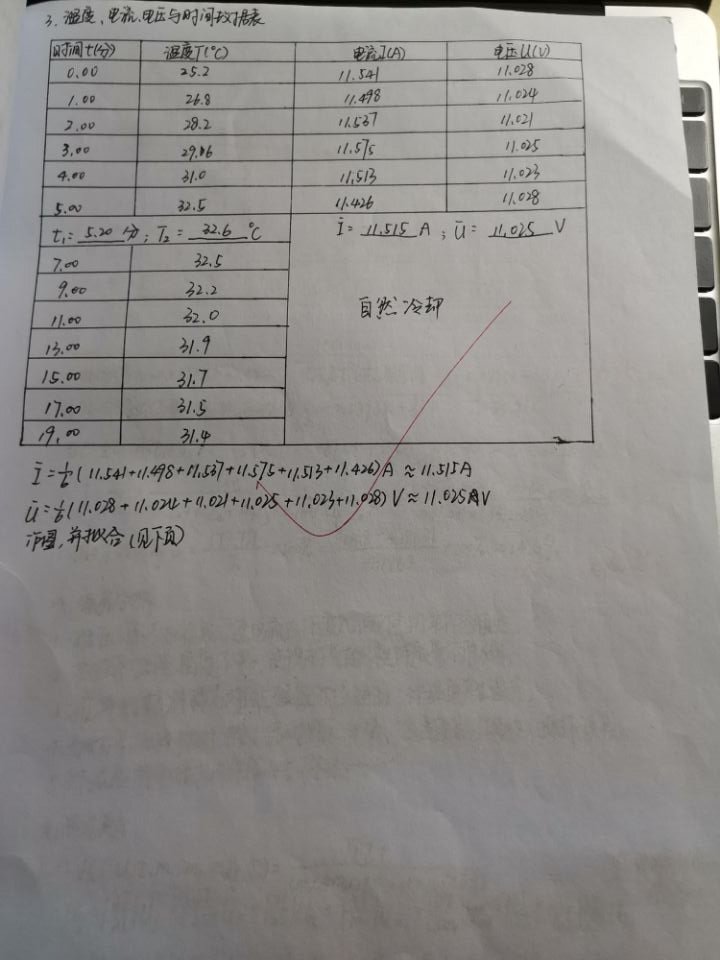 3. 温度、电流、电压与时间数据表
时间t(分) 温度T(℃) 电流I(A) 电压U(V)
0.00 25.2 11.541 11.028
1.00 26.8 11.498 11.024
2.00 28.2 11.537 11.021
3.00 29.86 11.575 11.025
4.00 31.0 11.513 11.023
5.00 32.5 11.426 11.028
t₁= 5.20 分; T₂= 32.6 ℃ Ī= 11.515 A ; Ū= 11.025 V
7.00 32.5
9.00 32.2
11.00 32.0
13.00 31.9
15.00 31.7
17.00 31.5
19.00 31.4
自然冷却
Ī=1/6(11.541+11.498+11.537+11.575+11.513+11.426)A≈11.515A
Ū=1/6(11.028+11.024+11.021+11.025+11.023+11.028)V≈11.025V
作图,并拟合(见下页)